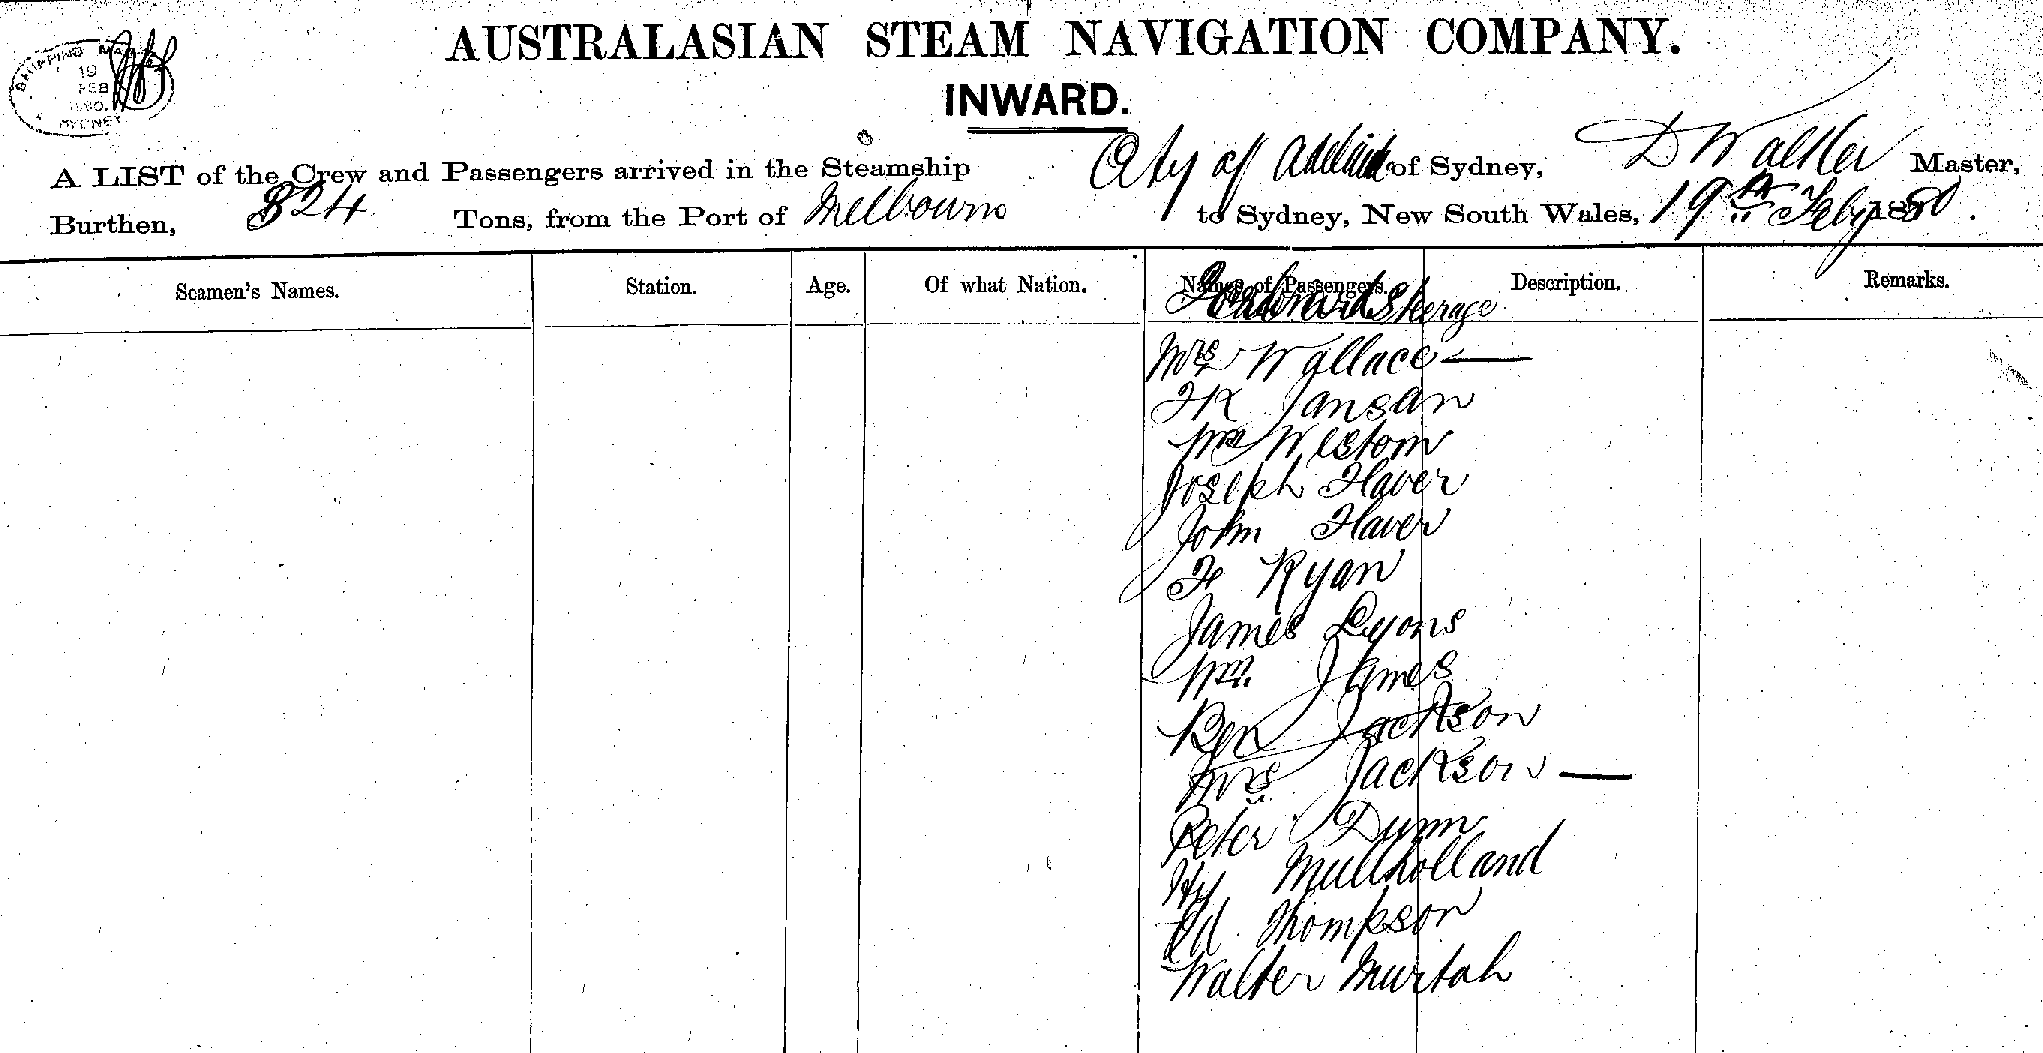 AUSTRALASIAN STEAM NAVIGATION COMPANY.
SHIPPING
19
FEB
1880.
SYDNEY
INWARD.
A LIST of the Crew and Passengers arrived in the Steamship City of Adelaide of Sydney, D Walker Master,
Burthen, 824 Tons, from the Port of Melbourn to Sydney, New South Wales, 19th Feby 1880.
Seamen's Names. Station. Age. Of what Nation. Names of Passengers. Description. Remarks.
Steerage
Mrs Wallace
Jansan
Westom
Joseph Haver
John Haver
Ryan
James Lyons
James
Ben Jackson
Mrs Jackson
Peter Dunn
Hy Mullholland
Ed Thompson
Walter Murtah